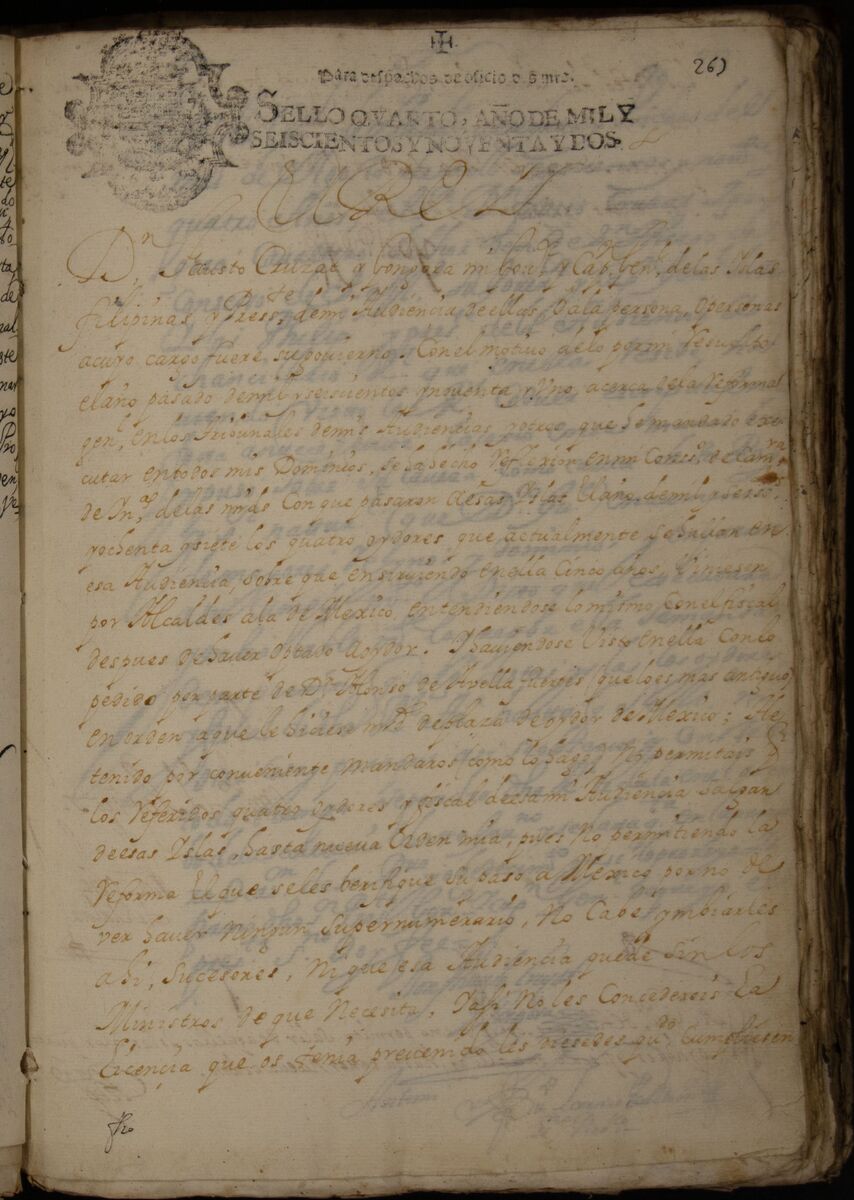 ✠
263
Para despachos de oficio dos mrs.
SELLO QVARTO, AÑO DE MIL Y
SEISCIENTOS Y NOVENTA Y DOS.
El REY
Dn. Fausto Cruzat y Gongora mi Gour. y Cap. Genl. de las Islas
filipinas, y Press.te de mi Audiencia de ellas, o ala persona, o personas
acuyo cargo fuere su govierno. Con el motivo de lo por mi Resuelto
el año pasado de mil y seiscientos y noventa y Uno, acerca de la reforma
gen.l en los tribunales de mis Audiencias, y otros, que he mandado exe-
cutar en todos mis Dominios, se ha hecho reflexion en mi Cons.o de Cam.ra
de Ind.s de las mrds Con que pasaron aesas Islas El año de mil y seis.s
y ochenta y siete los quatro oydores que actualmente se hallan en
esa Audiencia, sobre que en sirviendo en ella Cinco años, Viniesen
por Alcaldes ala de Mexico, entendiendose lo mismo Con el fiscal
despues de haver optado a oydor. Y haviendose Visto en ella Con lo
pedido por parte de Dn. Alonso de Avella fuertes (que lo es mas antiguo)
en orden a que le hiciese mrd. de plaza de oydor de Mexico; He
tenido por conveniente mandaros (como lo hago) no permitais q
los referidos quatro oydores y fiscal de esa mi Audiencia salgan
de esas Islas, hasta nueva Orden mia, pues No permitiendo la
reforma El que se les berifique su paso a Mexico por no de
ver haver Ningun Supernumerario, No Cave ymbiarles
ahi, sucesores, ni que esa Audiencia quede sin los
Ministros de que Necesita, Y asi No les Concedereis La
licençia que os tenia prevenido les diesedes qu.do Cumpliesen
fho